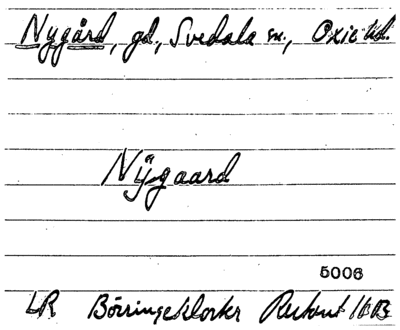 Nygård, gd., Svedala sn., Oxie hd.
Nÿgaard
5006
LR Börringekloster